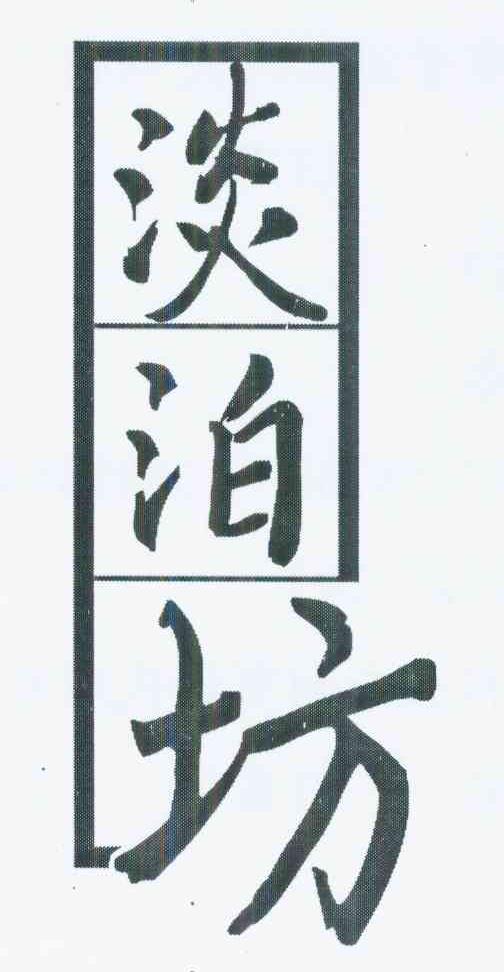 淡泊坊